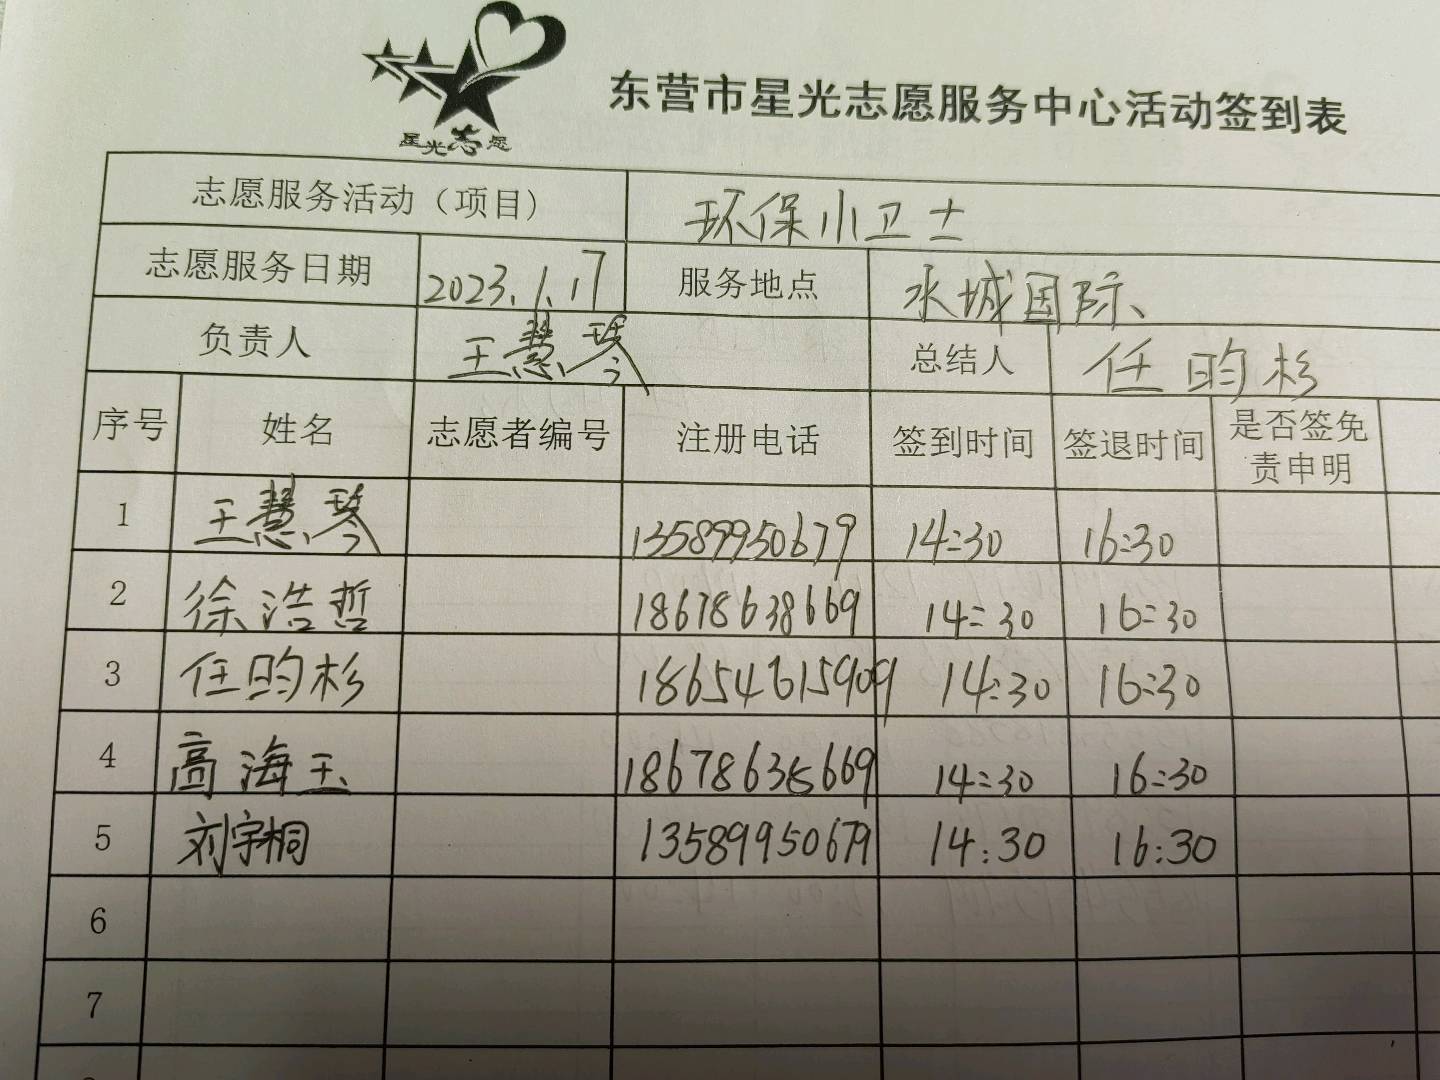 星光志愿
东营市星光志愿服务中心活动签到表
志愿服务活动（项目） 环保小卫士
志愿服务日期 2023.1.17 服务地点 水城国际
负责人 王慧琴 总结人 任昀杉
序号 姓名 志愿者编号 注册电话 签到时间 签退时间 是否签免责申明
1 王慧琴 13589950679 14:30 16:30
2 徐浩哲 18678638669 14:30 16:30
3 任昀杉 18654615909 14:30 16:30
4 高海玉 14:30 16:30
5 刘宇桐 13589950679 14:30 16:30
6
7